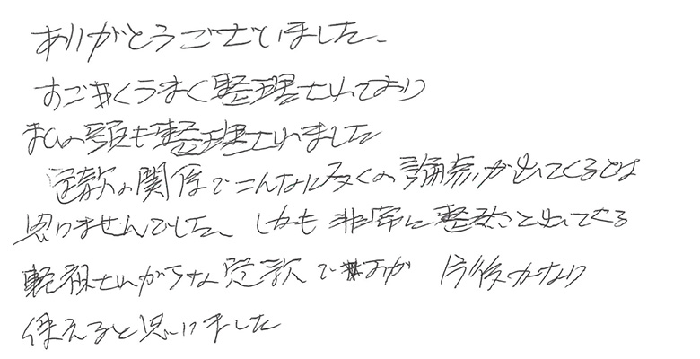 ありがとうございました、
すごくうまく整理されており
私の頭も整理されました
定款の関係でこんなに多くの論点が出てくるとは
思いませんでした、しかも非常に 出てくる
軽視されがちな定款ですが 今後かなり
使えると思いました